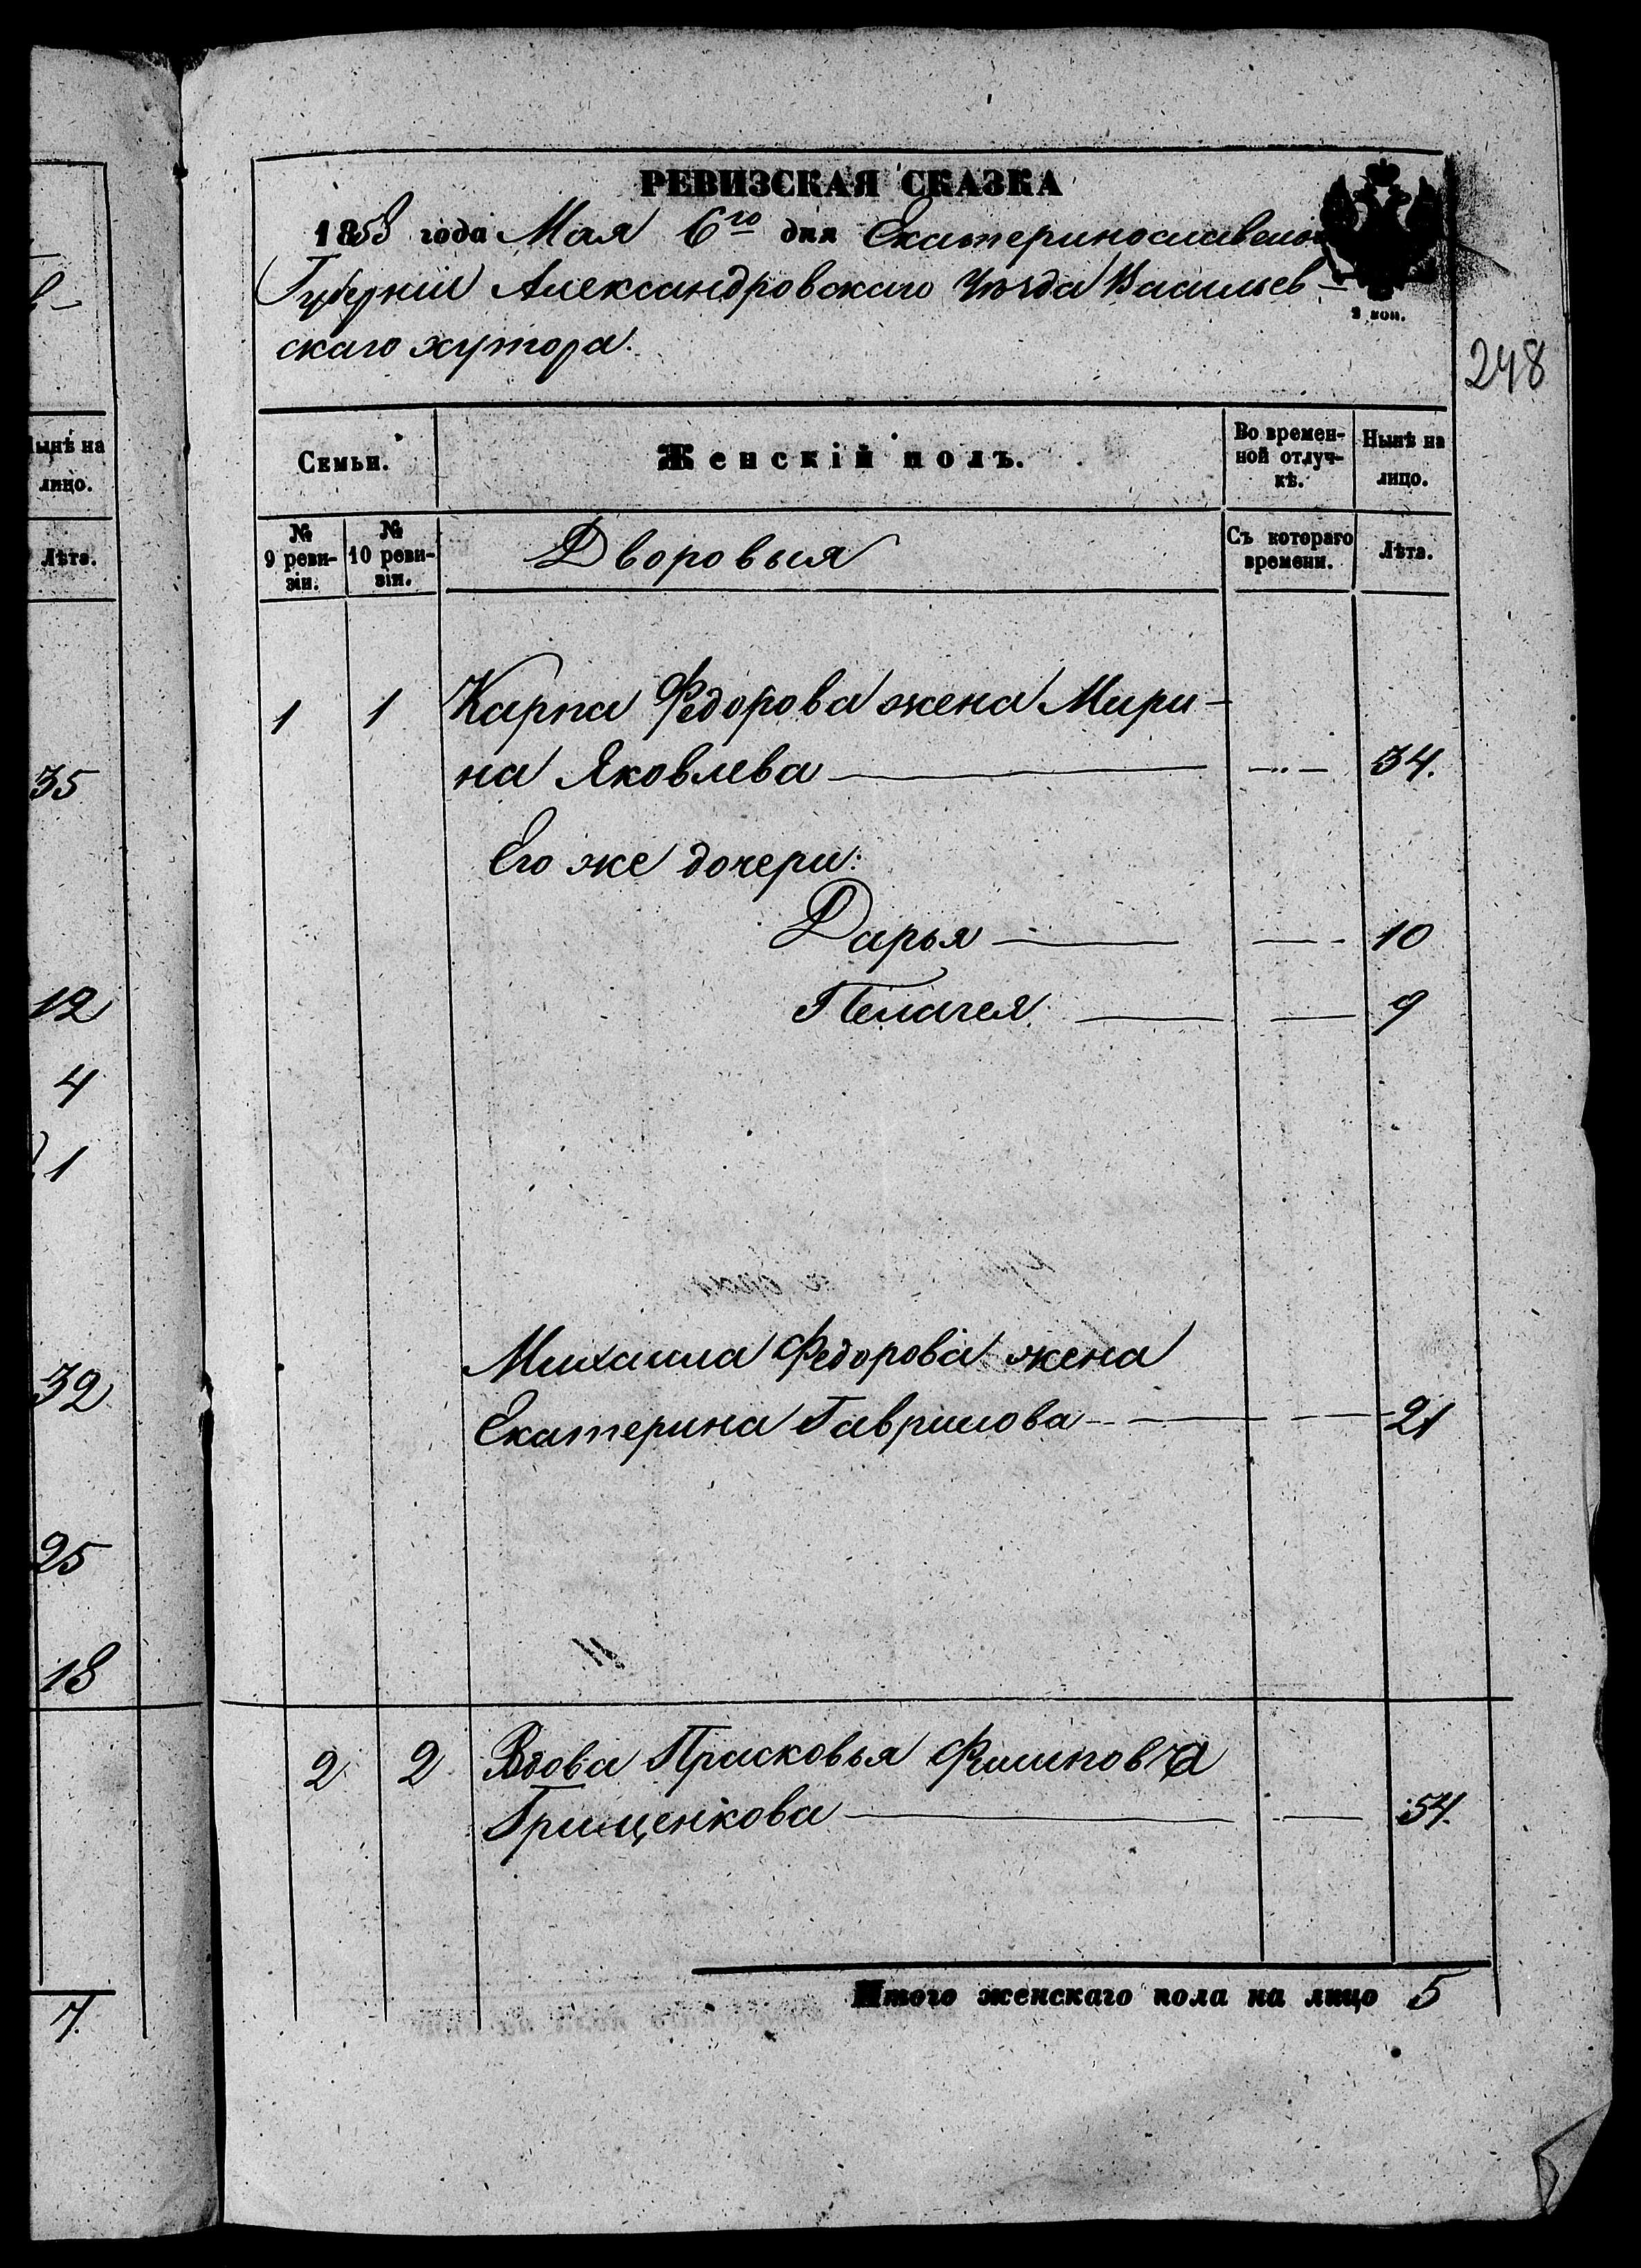 РЕВИЗСКАЯ СКАЗКА
1858 года Мая 6го дня Екатеринославской
Губерніи Александровскаго Уѣзда Васильев-
скаго хутора.
2 коп.
248
Семьи.
Женскій полъ.
Во времен-
ной отлуч-
кѣ.
Нынѣ на
лицо.
№
9 реви-
зіи.
№
10 реви-
зіи.
Дворовыя
Съ котораго
времени.
Лѣта.
1 1 Карпа Федорова жена Мари-
на Яковлева 34.
Его же дочери:
Дарья 10
Пелагея 9
Михаила Федорова жена
Екатерина Гаврилова 21
2 2 Вдова Прасковья Филипова
Грищенкова 54.
Итого женскаго пола на лицо 5
Нынѣ на
лицо.
Лѣта.
35
12
4
1
32
25
18
7.